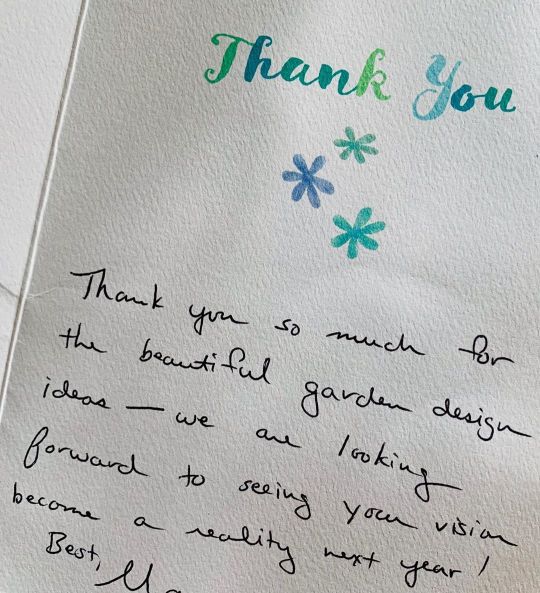 Thank You
Thank you so much for
the beautiful garden design
ideas — we are looking
forward to seeing your vision
become a reality next year!
Best,